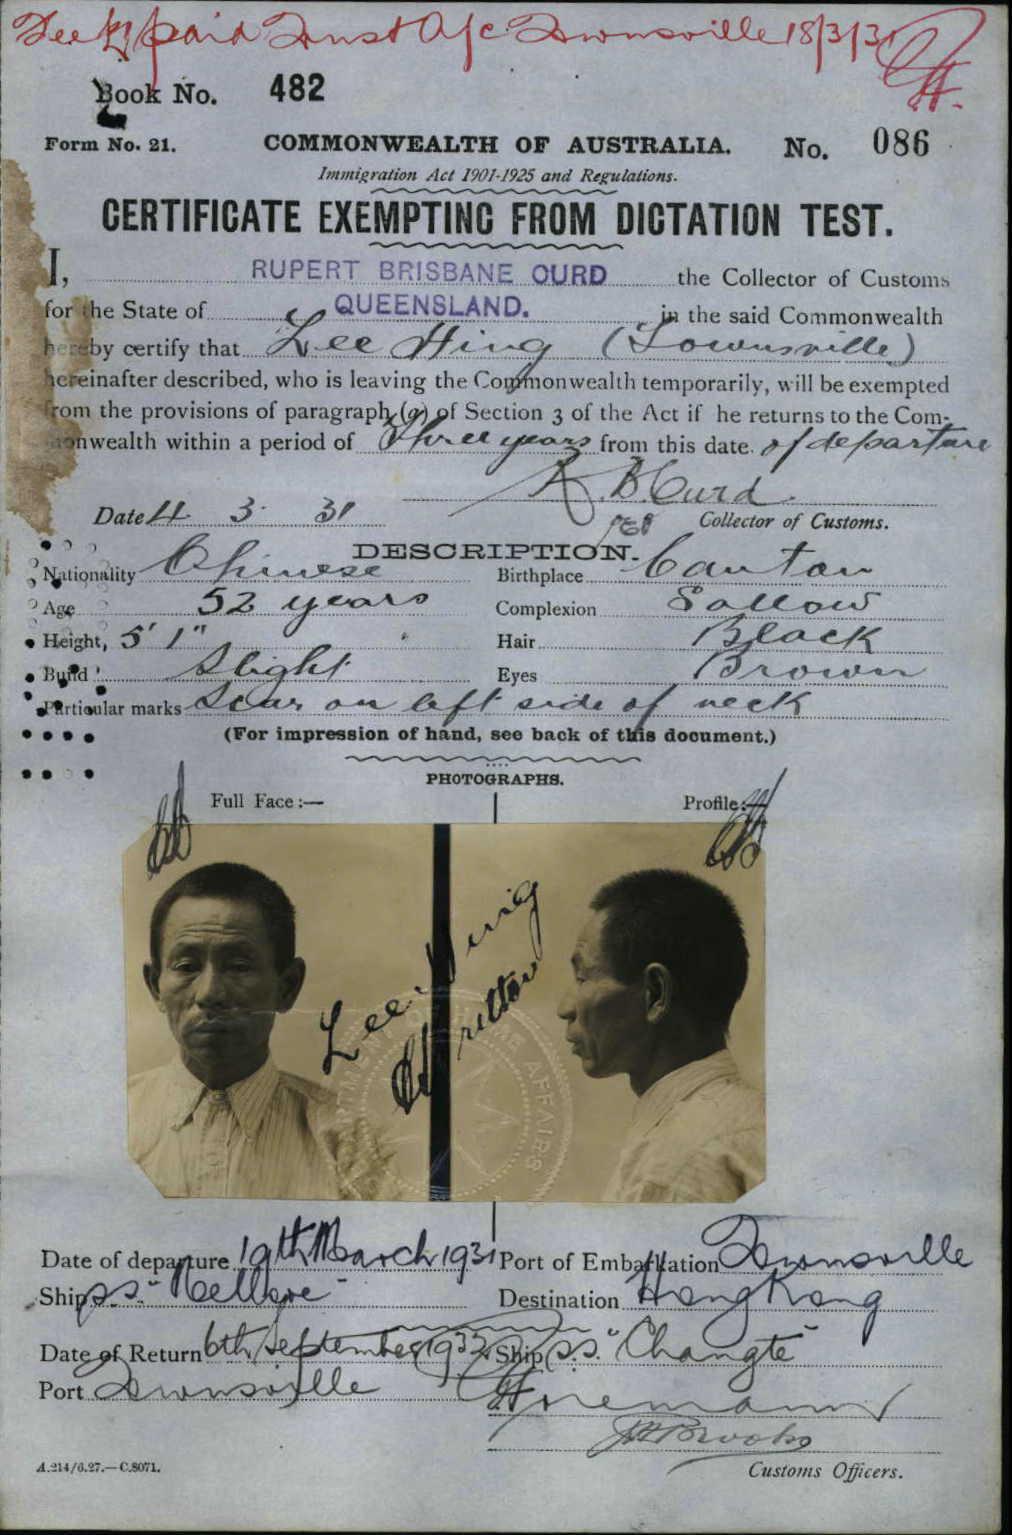 Fee £1 paid Trust A/c Townsville 18/3/31
Book No. 482
Form No. 21. COMMONWEALTH OF AUSTRALIA. No. 086
Immigration Act 1901-1925 and Regulations.
CERTIFICATE EXEMPTING FROM DICTATION TEST.
I, RUPERT BRISBANE CURD the Collector of Customs
for the State of QUEENSLAND. in the said Commonwealth
hereby certify that Lee Hing (Townsville)
hereinafter described, who is leaving the Commonwealth temporarily, will be exempted
from the provisions of paragraph (a) of Section 3 of the Act if he returns to the Com-
monwealth within a period of Three years from this date of departure
R. B. Curd
Date 4 3 31 Collector of Customs.
DESCRIPTION.
Nationality Chinese Birthplace Canton
Age 52 years Complexion Sallow
Height, 5' 1" Hair Black
Build Slight Eyes Brown
Particular marks Scar on left side of neck
(For impression of hand, see back of this document.)
PHOTOGRAPHS.
Full Face :— Profile :—
Lee Hing
AFFAIRS
Date of departure 19th March 1931 Port of Embarkation Townsville
Ship s.s. "Nellore" Destination Hong Kong
Date of Return 6th September 1933 Ship s.s. "Changte"
Port Townsville
J. H. Brooks
Customs Officers.
A.214/6.27.—C.8071.